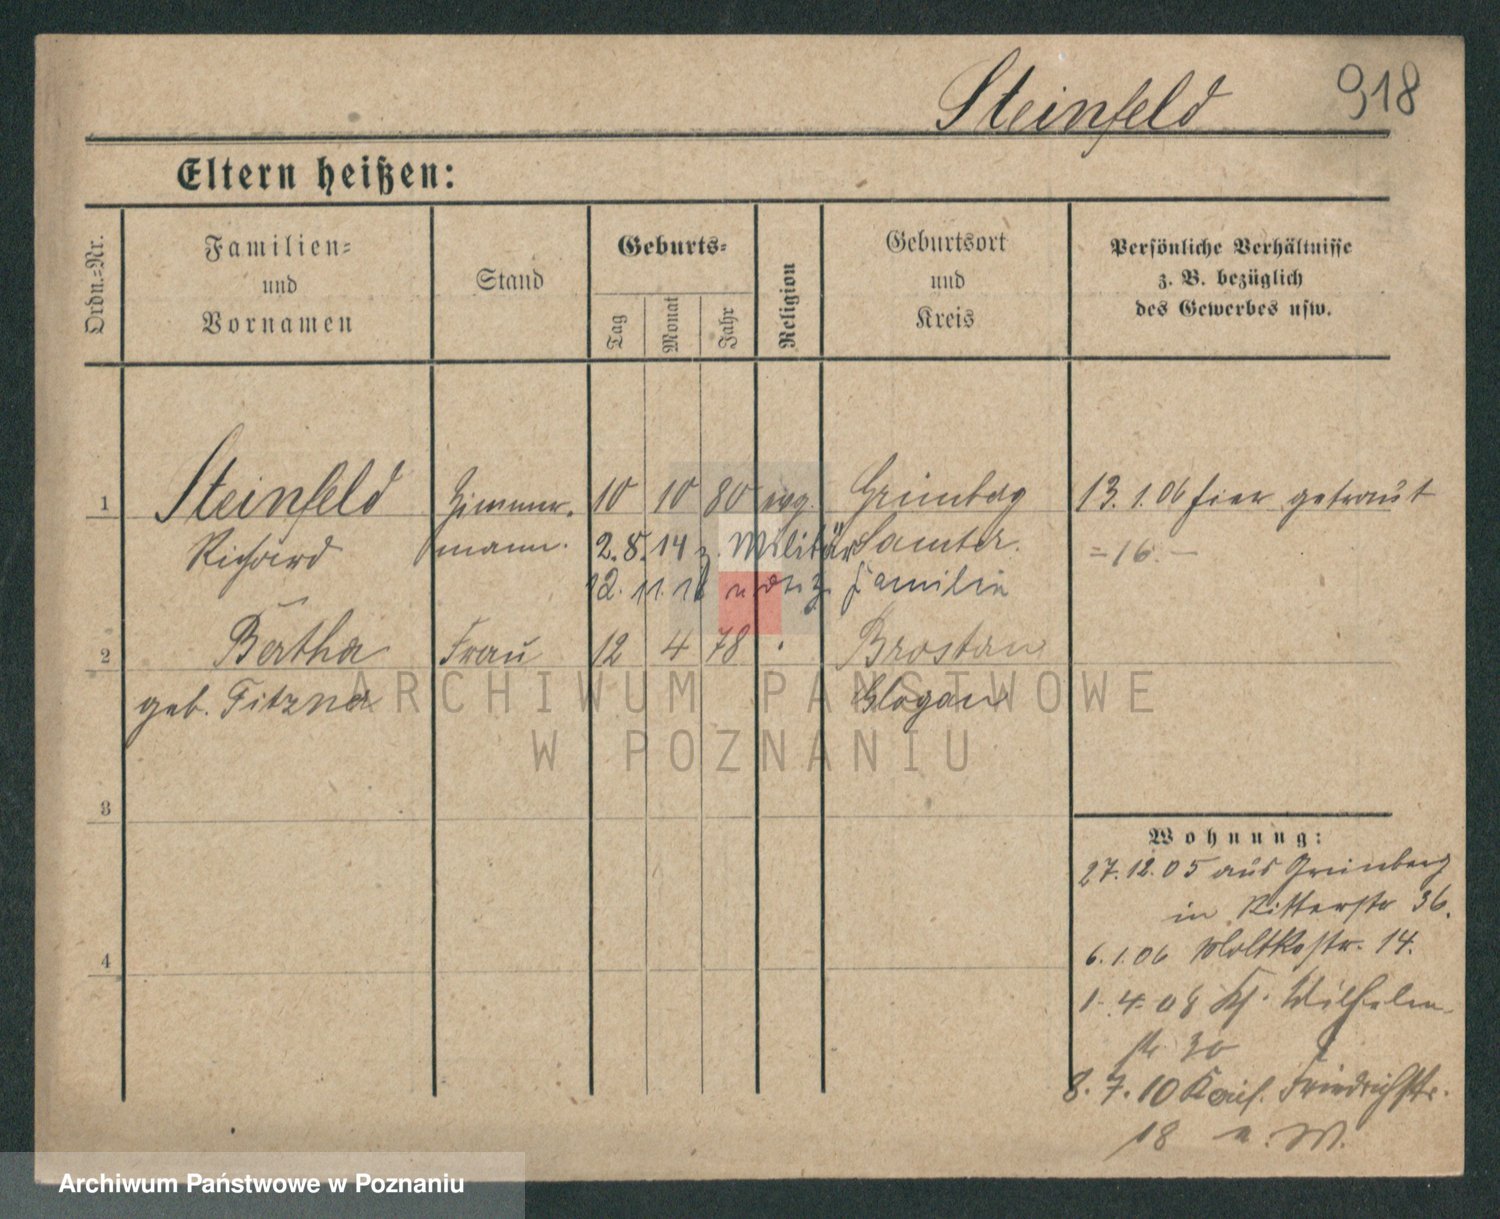 Steinfeld 918
Eltern heißen:
Ordn.=Nr.
Familien=
und
Vornamen
Stand
Geburts=
Tag
Monat
Jahr
Religion
Geburtsort
und
Kreis
Persönliche Verhältnisse
z. B. bezüglich
des Gewerbes usw.
1 Steinfeld Zimmer- 10 10 80 evg. 13.1.06 hier getraut
Richard mann. 2.8.14 z. Militär Samter. =16.—
12.11.18 z. Familie
2 Bertha Frau 12 4 78 Brostau
geb. Fitzner Glogau
ARCHIWUM PAŃSTWOWE
W POZNANIU
3
4
Wohnung:
27.12.05 aus Grünberg
in Ritterstr 36.
6.1.06 Moltkestr. 14.
1.4.08 Wilhelm-
str 30
8.7.10 Kais. Friedrichstr.
18 u. W.
Archiwum Państwowe w Poznaniu